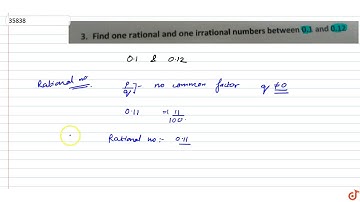 35838
3. Find one rational and one irrational numbers between 0.1 and 0.12
0.1 & 0.12
Rational no p/q } - no common factor q ≠0
0.11 = 11/100
Rational no:- 0.11